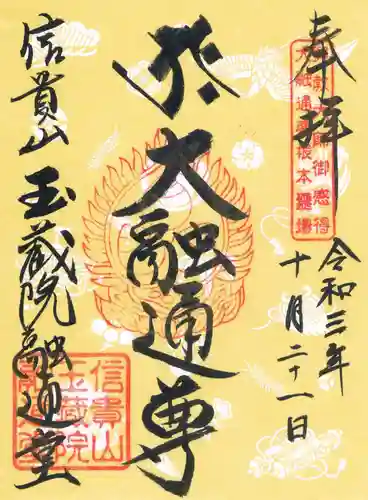 奉拝
令和三年
十月二十一日
大融通尊
信貴山玉蔵院融通堂
大師御感得
大融通尊根本霊場
信貴山
玉蔵院